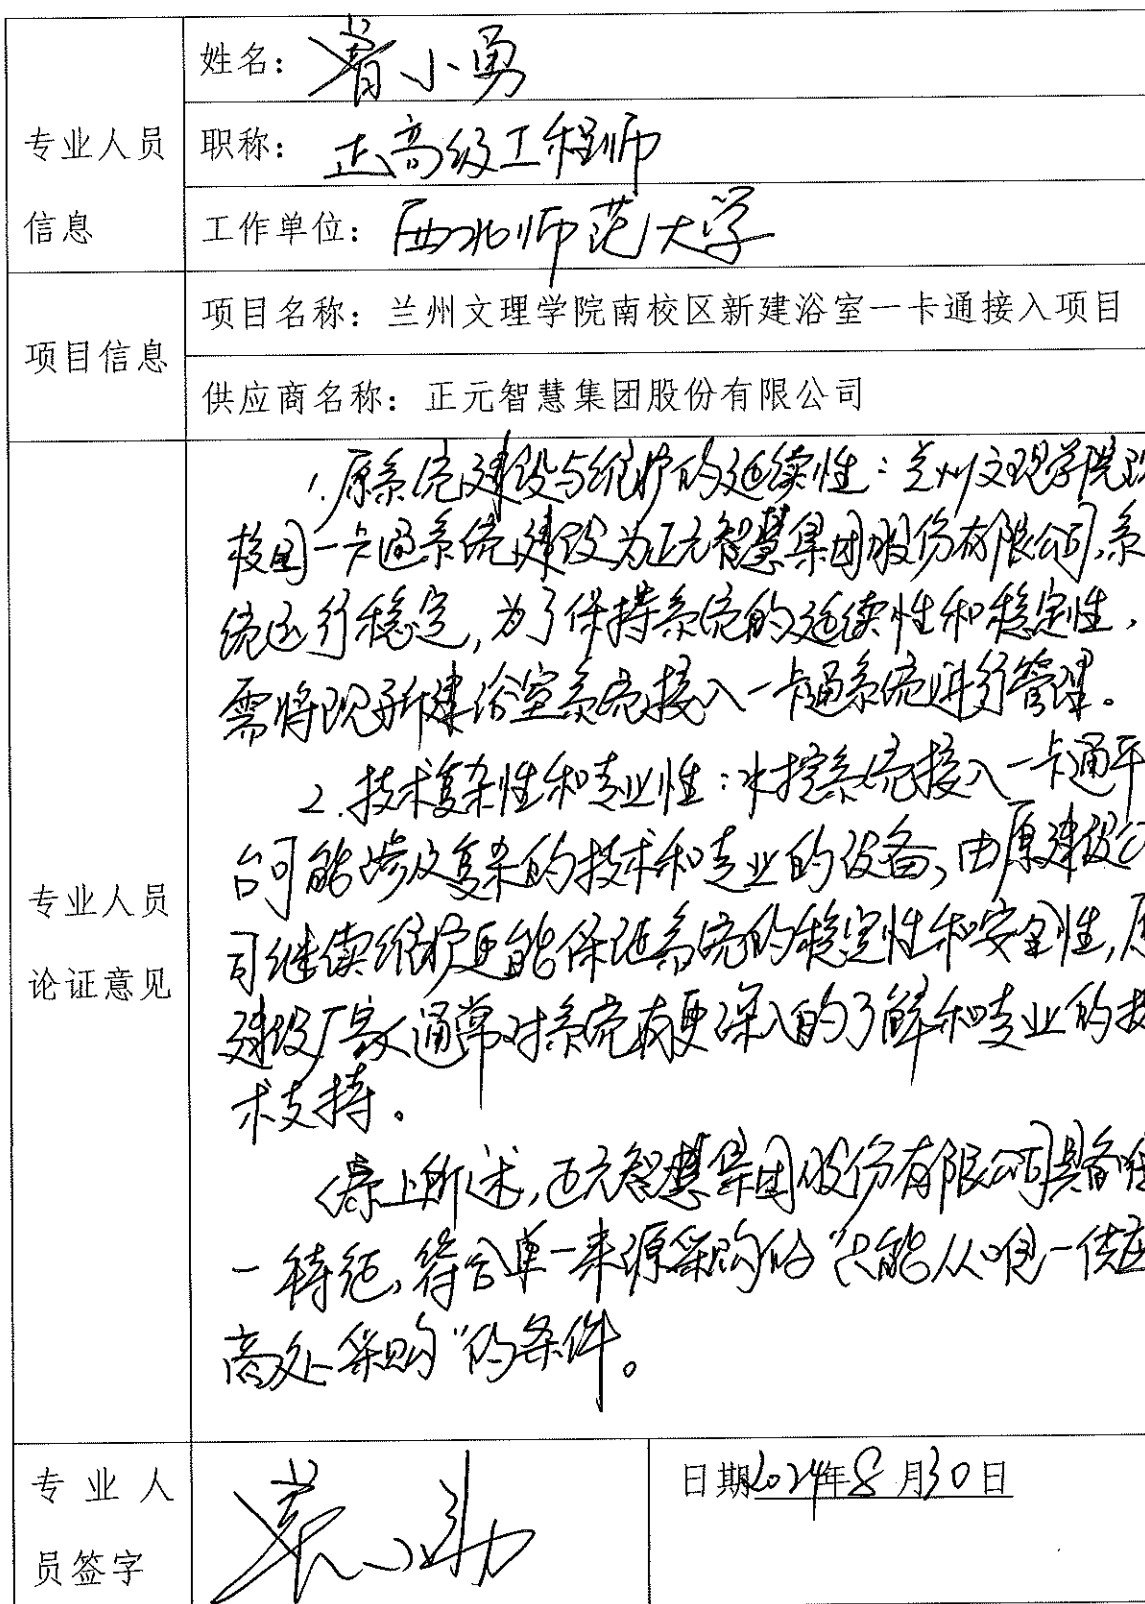 姓名：眷小勇
专业人员
信息
职称：正高级工程师
工作单位：西北师范大学
项目信息
项目名称：兰州文理学院南校区新建浴室一卡通接入项目
供应商名称：正元智慧集团股份有限公司
专业人员
论证意见
1.原系统建设与维护的延续性：兰州文理学院现
校园一卡通系统建设为正元智慧集团股份有限公司，系
统运行稳定，为了保持系统的延续性和稳定性，
需将现新建浴室系统接入一卡通系统进行管理。
2.技术复杂性和专业性：水控系统接入一卡通平
台可能涉及复杂的技术和专业的设备，由原建设公
司继续维护更能保证系统的稳定性和安全性，原
建设厂家通常对系统有更深入的了解和专业的技
术支持。
综上所述，正元智慧集团股份有限公司具备唯
一特征，符合单一来源采购的“只能从唯一供应
商处采购”的条件。
专业人
员签字
日期2024年8月30日